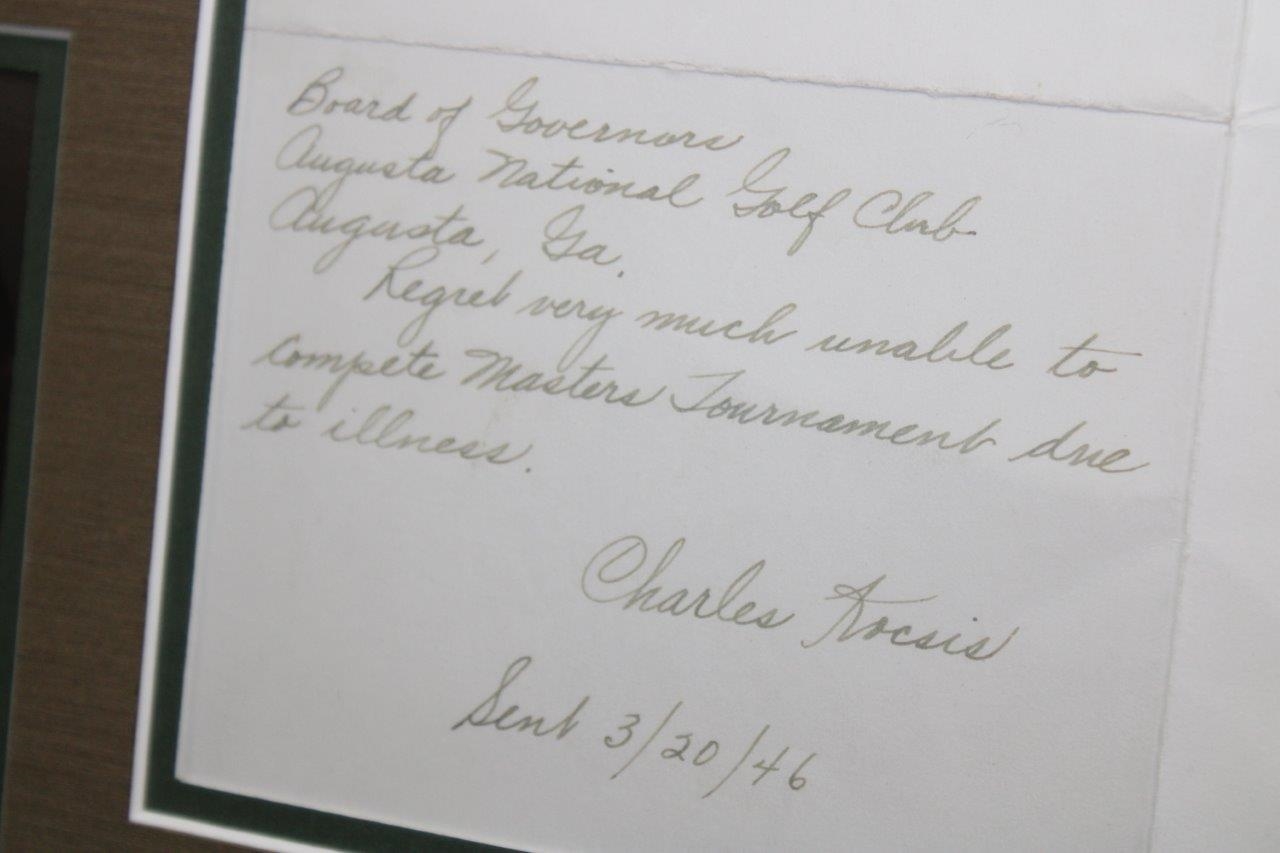 Board of Governors
Augusta National Golf Club
Augusta, Ga.
Regret very much unable to
compete Masters Tournament due
to illness.
Charles Kocsis
Sent 3/20/46